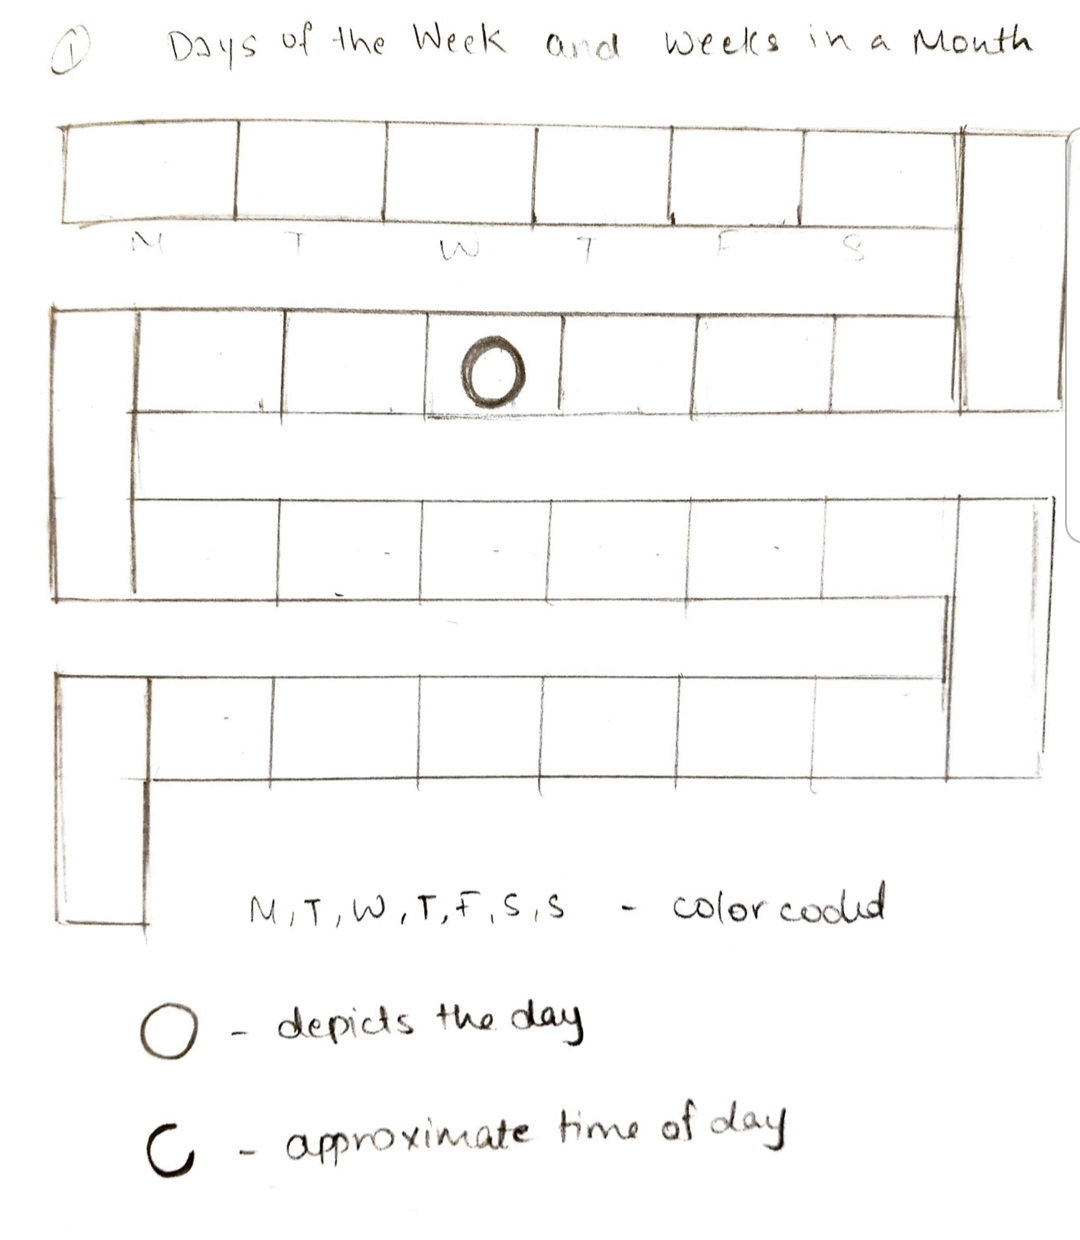 ① Days of the Week and Weeks in a Month
M T W T F S
M, T, W, T, F, S, S - color coded
- depicts the day
- approximate time of day